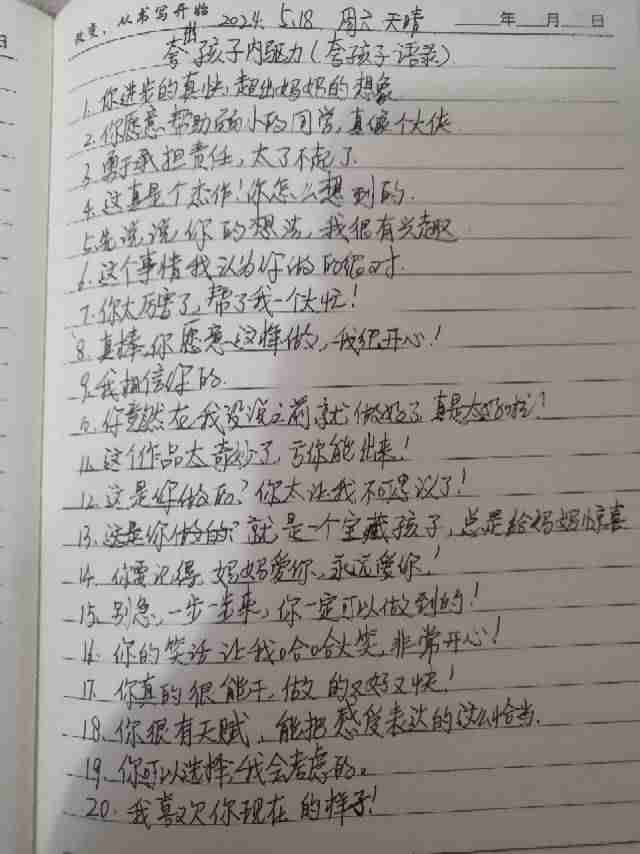 改变，从书写开始 2024. 5.18 周六 天晴 年 月 日
夸孩子内驱力（夸孩子语录）
1. 你进步的真快，超出妈妈的想象
2. 你愿意帮助弱小的同学，真像个大侠
3. 勇于承担责任，太了不起了
4. 这真是个杰作！你怎么想到的.
5. 先说说你的想法，我很有兴趣
6. 这个事情我认为你做的很对.
7. 你太厉害了，帮了我一个大忙！
8. 真棒，你愿意这样做，我很开心！
9. 我相信你的.
10. 你竟然在我没说之前就做好了 真是太好啦！
11. 这个作品太奇妙了，亏你能想出来！
12. 这是你做的？你太让我不可思议了！
13. 这是你做的？就是一个宝藏孩子，总是给妈妈惊喜
14. 你要记得，妈妈爱你，永远爱你！
15. 别急，一步一步来，你一定可以做到的！
16. 你的笑话让我哈哈大笑，非常开心！
17. 你真的很能干，做的又好又快！
18. 你很有天赋，能把感受表达的这么恰当.
19. 你可以选择，我会考虑的。
20. 我喜欢你现在的样子！
日